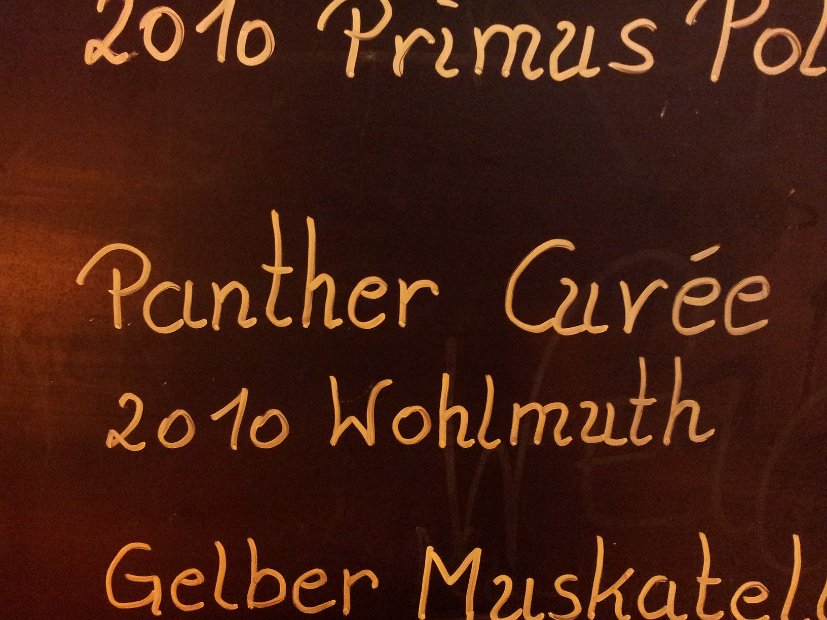 2010 Primus Pol
Panther Cuvée
2010 Wohlmuth
Gelber Muskatel